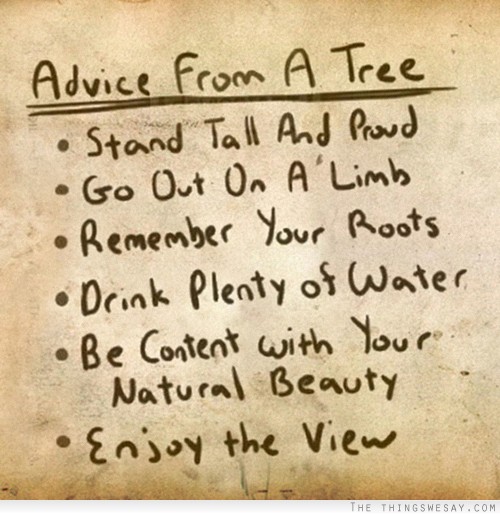 Advice From A Tree
• Stand Tall And Proud
• Go Out On A Limb
• Remember Your Roots
• Drink Plenty of Water
• Be Content with Your
Natural Beauty
• Enjoy the View
THE THINGSWESAY.COM